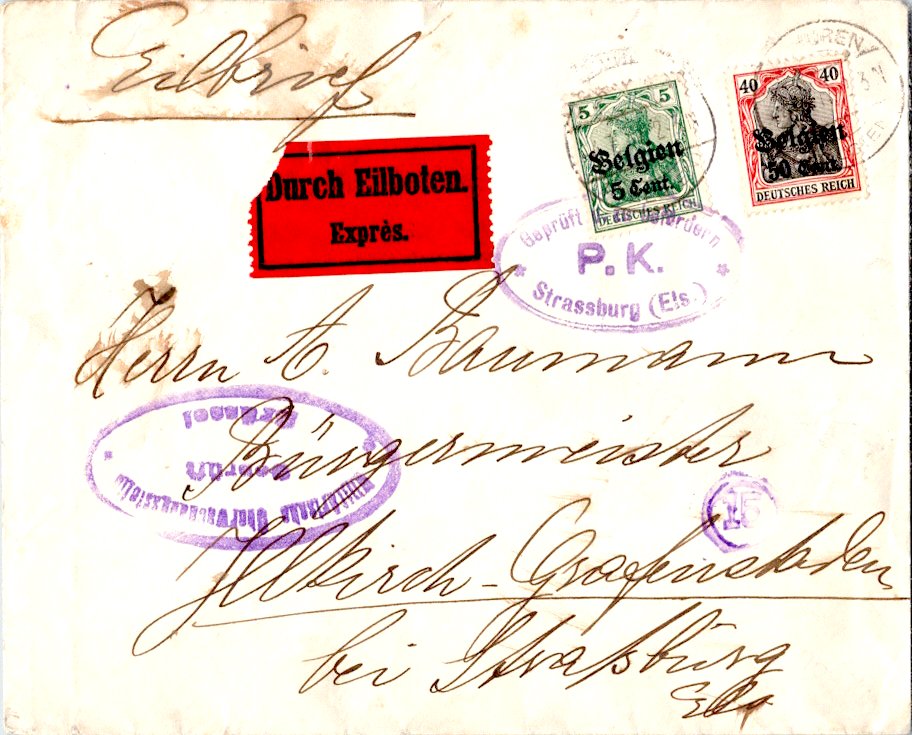 Eilbrief
Durch Eilboten.
Exprès.
5 5
Belgien
5 Cent.
DEUTSCHES REICH
40 40
Belgien
50 Cent.
DEUTSCHES REICH
Geprüft zu befördern
P.K.
Strassburg (Els.)
Herrn A. Baumann
Bürgermeister
Militärische Überwachungsstelle
Geprüft
Brüssel
15
Illkirch-Grafenstaden
bei Straßburg
Els